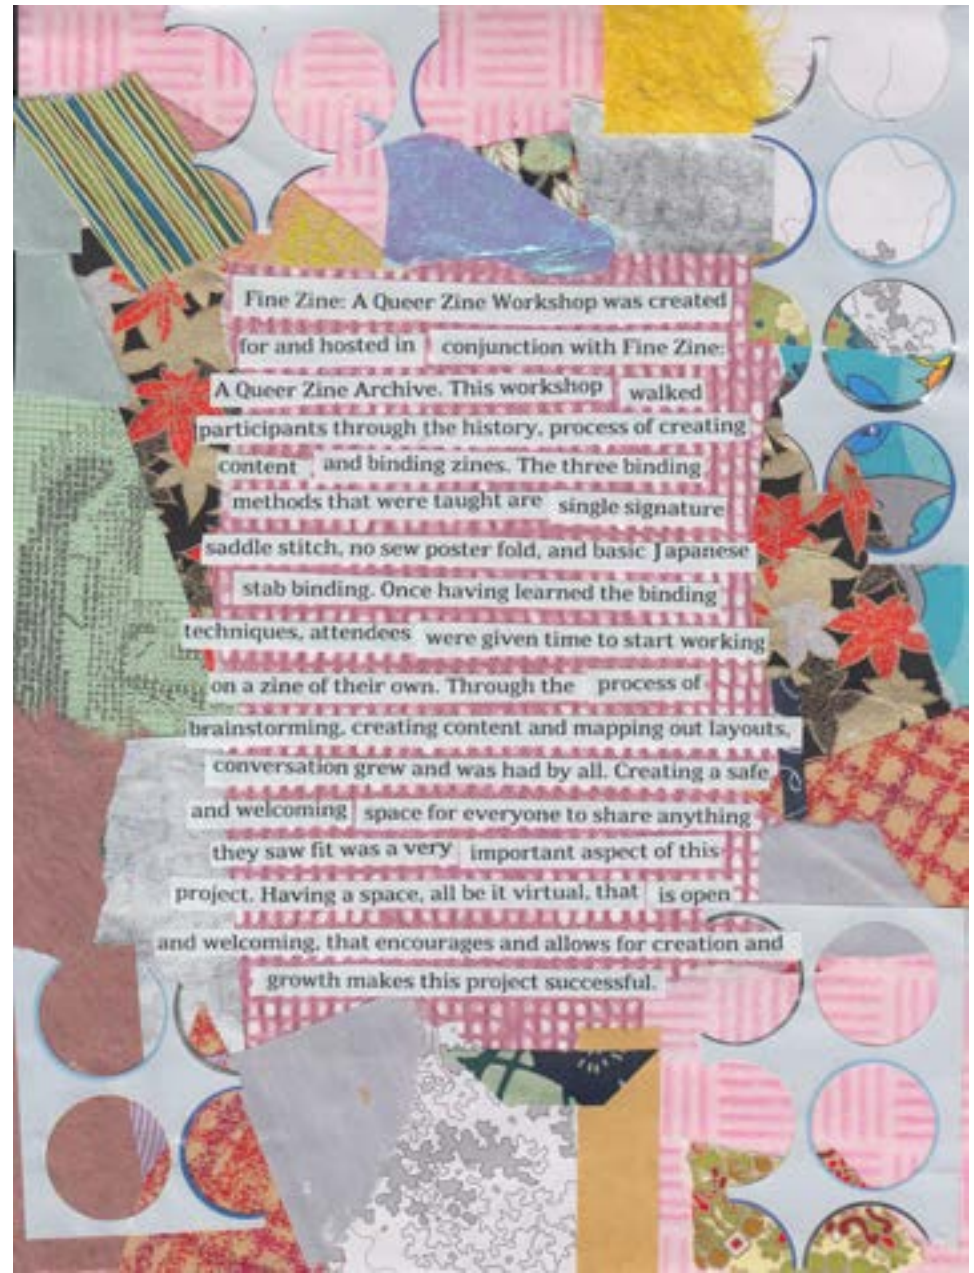 Fine Zine: A Queer Zine Workshop was created
for and hosted in conjunction with Fine Zine:
A Queer Zine Archive. This workshop walked
participants through the history, process of creating
content and binding zines. The three binding
methods that were taught are single signature
saddle stitch, no sew poster fold, and basic Japanese
stab binding. Once having learned the binding
techniques, attendees were given time to start working
on a zine of their own. Through the process of
brainstorming, creating content and mapping out layouts,
conversation grew and was had by all. Creating a safe
and welcoming space for everyone to share anything
they saw fit was a very important aspect of this
project. Having a space, all be it virtual, that is open
and welcoming, that encourages and allows for creation and
growth makes this project successful.